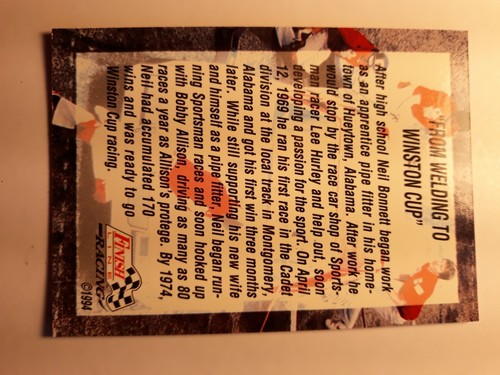 "FROM WELDING TO
WINSTON CUP"
After high school Neil Bonnett began work
as an apprentice pipe fitter in his home-
town of Hueytown, Alabama. After work he
would stop by the race car shop of Sports-
man racer Lee Hurley and help out, soon
developing a passion for the sport. On April
12, 1969 he ran his first race in the Cadet
division at the local track in Montgomery,
Alabama and got his first win three months
later. While still supporting his new wife
and himself as a pipe fitter, Neil began run-
ning Sportsman races and soon hooked up
with Bobby Allison, driving as many as 80
races a year as Allison's protege. By 1974,
Neil had accumulated 170
wins and was ready to go
Winston Cup racing.
FINISH
LINE
RACING
©1994